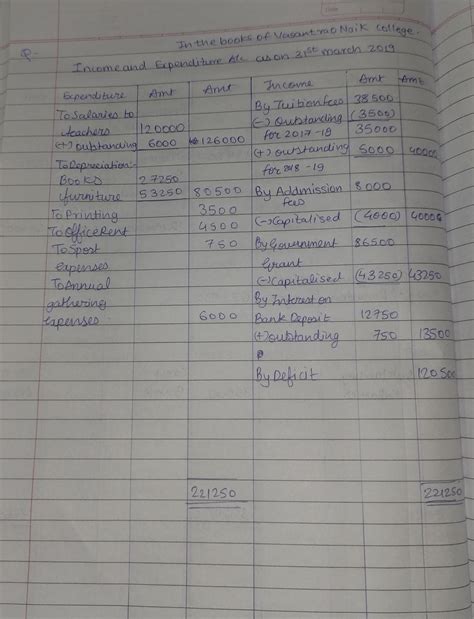 Q-
In the books of Vasantrao Naik College.
Income and Expenditure A/c as on 31st march 2019
Expenditure Amt Amt Income Amt Amt
To Salaries to By Tuition fees 38500
teachers 120000 (-) Outstanding (3500)
(+) Outstanding 6000 126000 for 2017-18 35000
To Depreciation:- (+) Outstanding 5000 40000
Books 27250 for 2018-19
furniture 53250 80500 By Addmission 8000
To Printing 3500 fees
To Office Rent 4500 (-) Capitalised (4000) 4000
To Sport 750 By Government 86500
expenses Grant
To Annual (-) Capitalised (43250) 43250
gathering By Interest on
expenses 6000 Bank Deposit 12750
(+) Outstanding 750 13500
By Deficit 120500
221250 221250